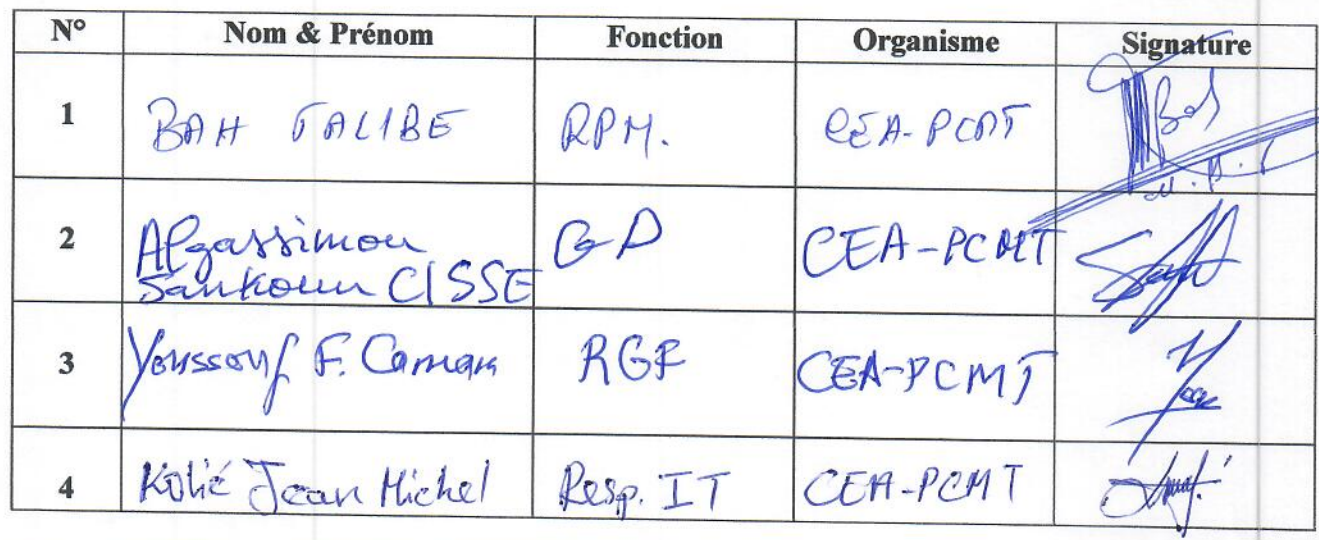 N° Nom & Prénom Fonction Organisme Signature
1 BAH TALIBE RPM. CEA-PCMT
2 Algassimou Sankoun CISSE GD CEA-PCMT
3 Youssouf F. Camara RGF CEA-PCMT
4 Kolié Jean Michel Resp. IT CEA-PCMT